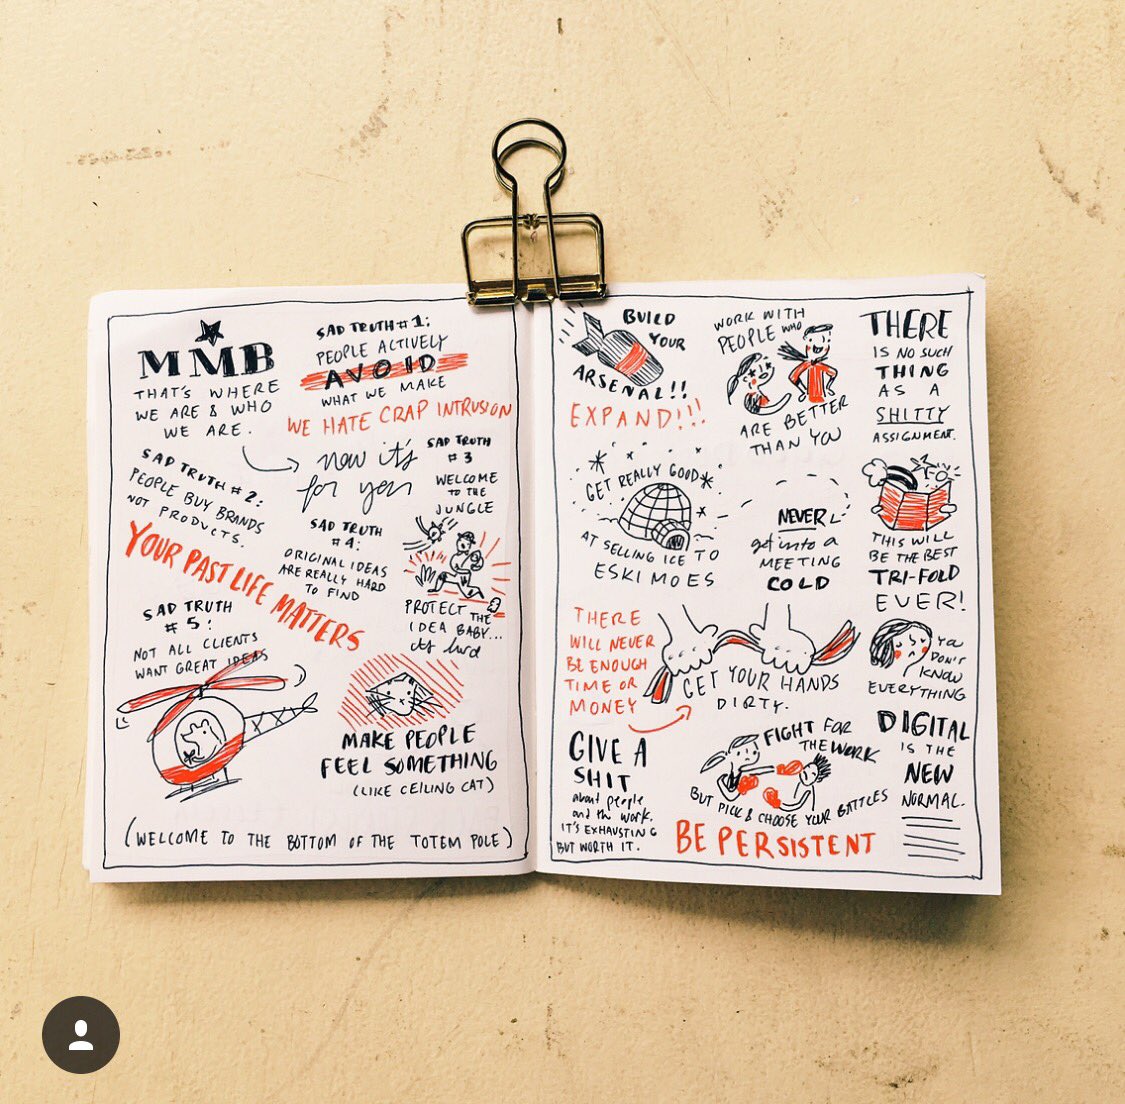 MMB
THAT'S WHERE
WE ARE & WHO
WE ARE.
SAD TRUTH #1:
PEOPLE ACTIVELY
AVOID
WHAT WE MAKE
WE HATE CRAP INTRUSION
now it's
for yen
SAD TRUTH #2:
PEOPLE BUY BRANDS
NOT PRODUCTS.
SAD TRUTH
#3
WELCOME
TO THE
JUNGLE
SAD TRUTH
#4:
ORIGINAL IDEAS
ARE REALLY HARD
TO FIND
PROTECT THE
IDEA BABY...
its hard
YOUR PAST LIFE MATTERS
SAD TRUTH
#5:
NOT ALL CLIENTS
WANT GREAT IDEAS
MAKE PEOPLE
FEEL SOMETHING
(LIKE CEILING CAT)
(WELCOME TO THE BOTTOM OF THE TOTEM POLE)
BUILD
YOUR
ARSENAL!!
EXPAND!!!
WORK WITH
PEOPLE WHO
ARE BETTER
THAN YOU
THERE
IS NO SUCH
THING
AS A
SHITTY
ASSIGNMENT.
GET REALLY GOOD
AT SELLING ICE TO
ESKIMOES
NEVER
get into a
MEETING
COLD
THIS WILL
BE THE BEST
TRI-FOLD
EVER!
THERE
WILL NEVER
BE ENOUGH
TIME OR
MONEY
GET YOUR HANDS
DIRTY.
YOU
DON'T
KNOW
EVERYTHING
GIVE A
SHIT
about people
and the work.
IT'S EXHAUSTING
BUT WORTH IT.
FIGHT FOR
THE WORK
BUT PICK & CHOOSE YOUR BATTLES
BE PERSISTENT
DIGITAL
IS THE
NEW
NORMAL.